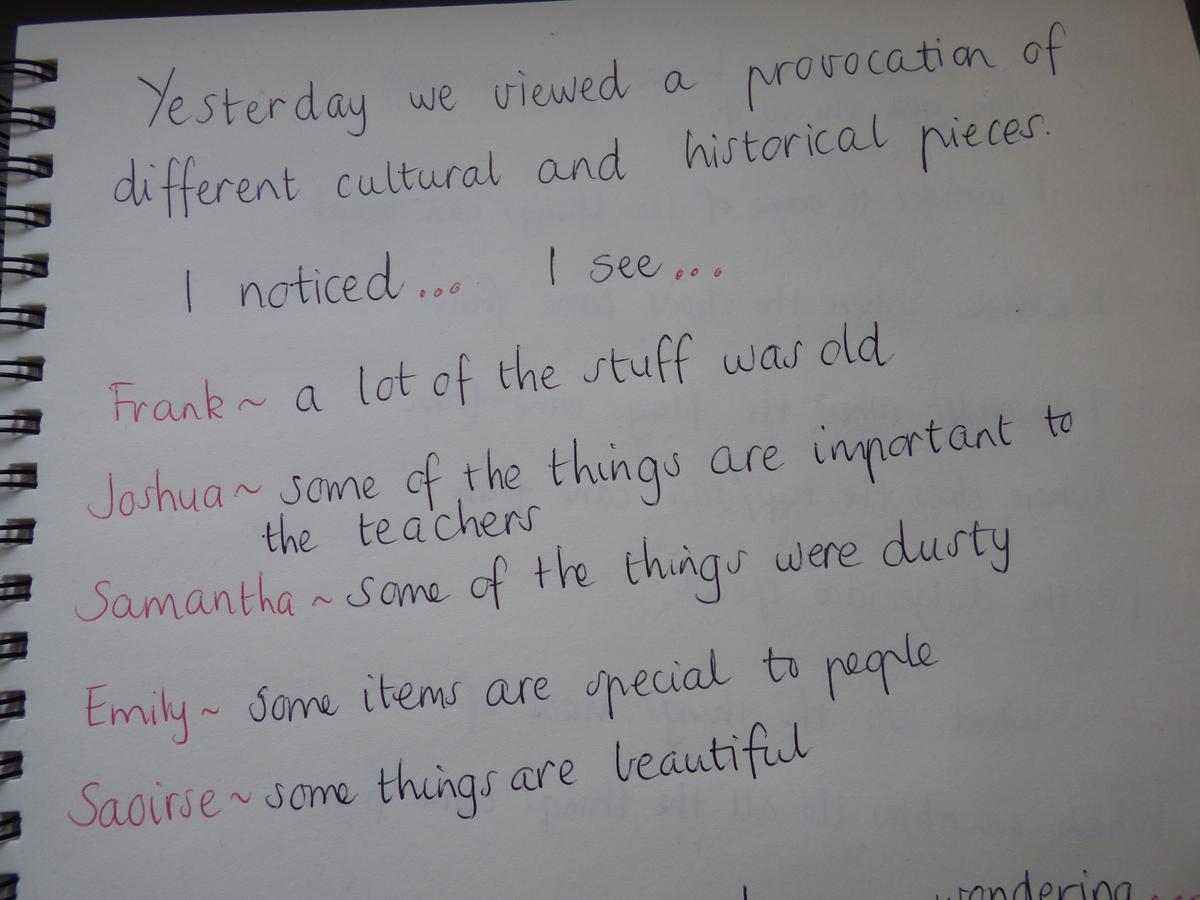 Yesterday we viewed a provocation of
different cultural and historical pieces.
I noticed... I see...
Frank ~ a lot of the stuff was old
Joshua ~ some of the things are important to
the teachers
Samantha ~ some of the things were dusty
Emily ~ some items are special to people
Saoirse ~ some things are beautiful
wondering...